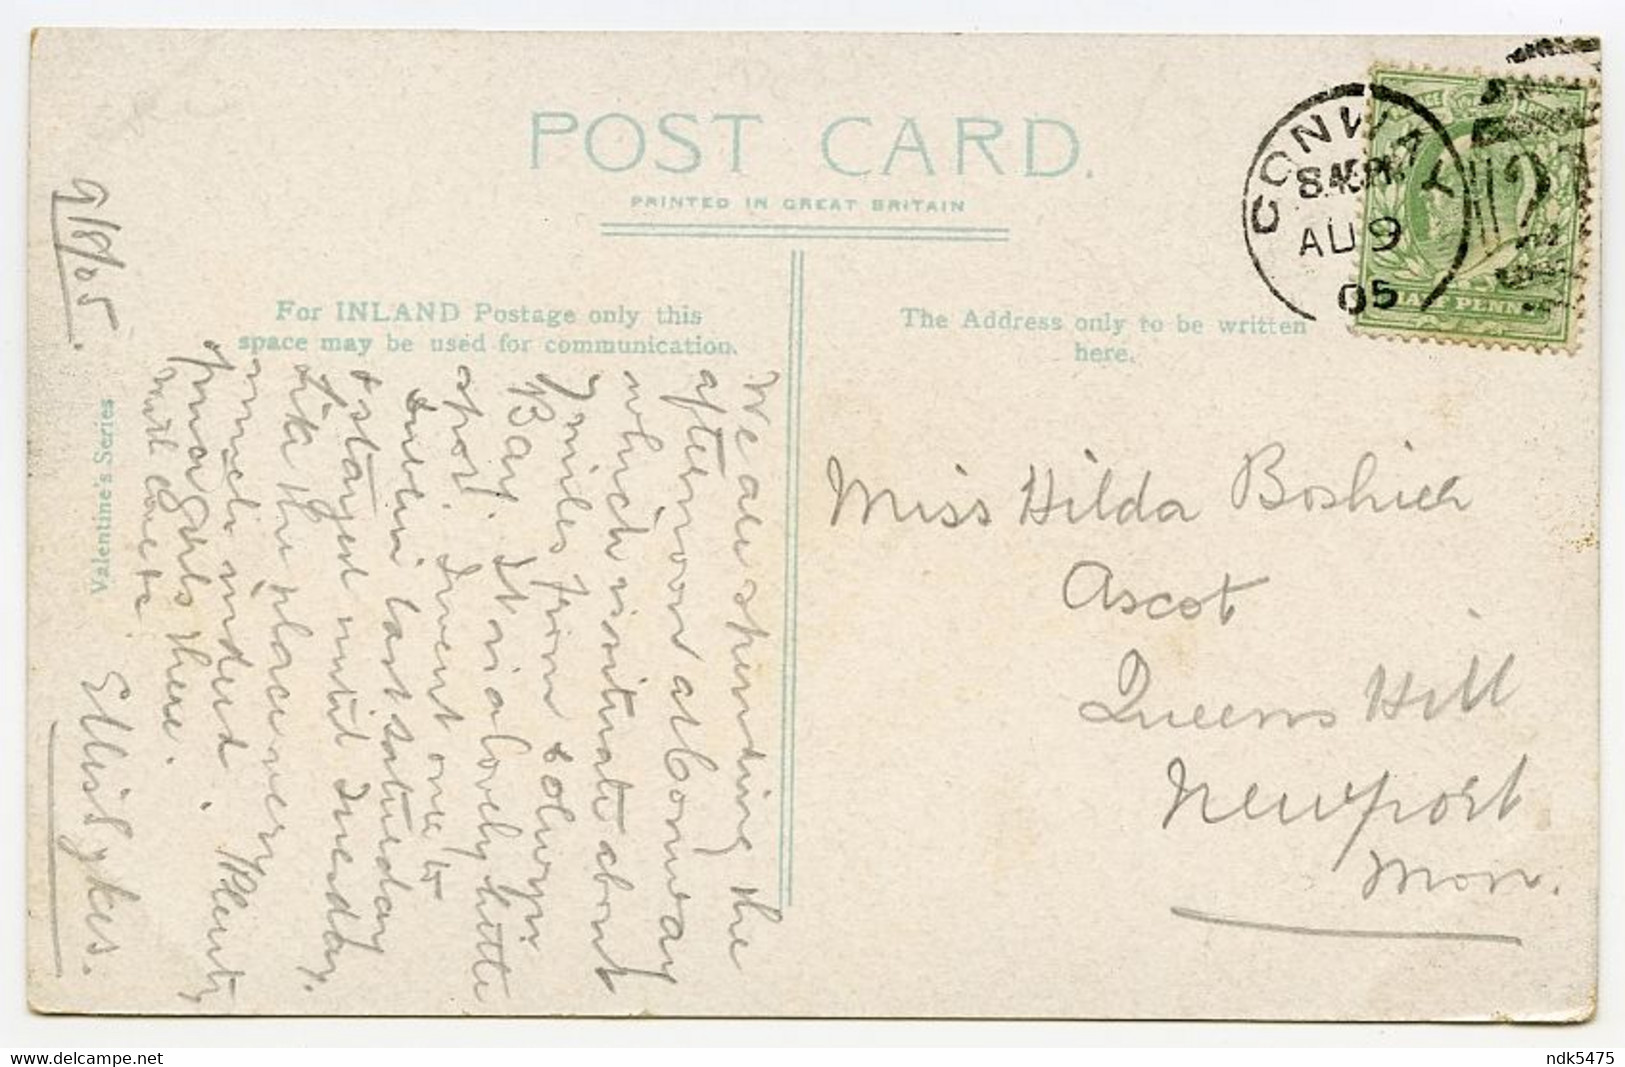 POST CARD.
PRINTED IN GREAT BRITAIN
For INLAND Postage only this
space may be used for communication.
The Address only to be written
here.
Valentine's Series
CONWAY
8.45PM
AU 9
05
HALF PENNY
9/8/05.
We are spending the
afternoon at Conway
which is situate about
7 miles from Colwyn
Bay. It is a lovely little
spot. I went over to
last Saturday
& stayed until Tuesday.
Like the place very
much indeed. Plenty
girls there.
Ellis Sykes.
Miss Hilda
Ascot
Queens Hill
Newport
Mon.
ndk5475